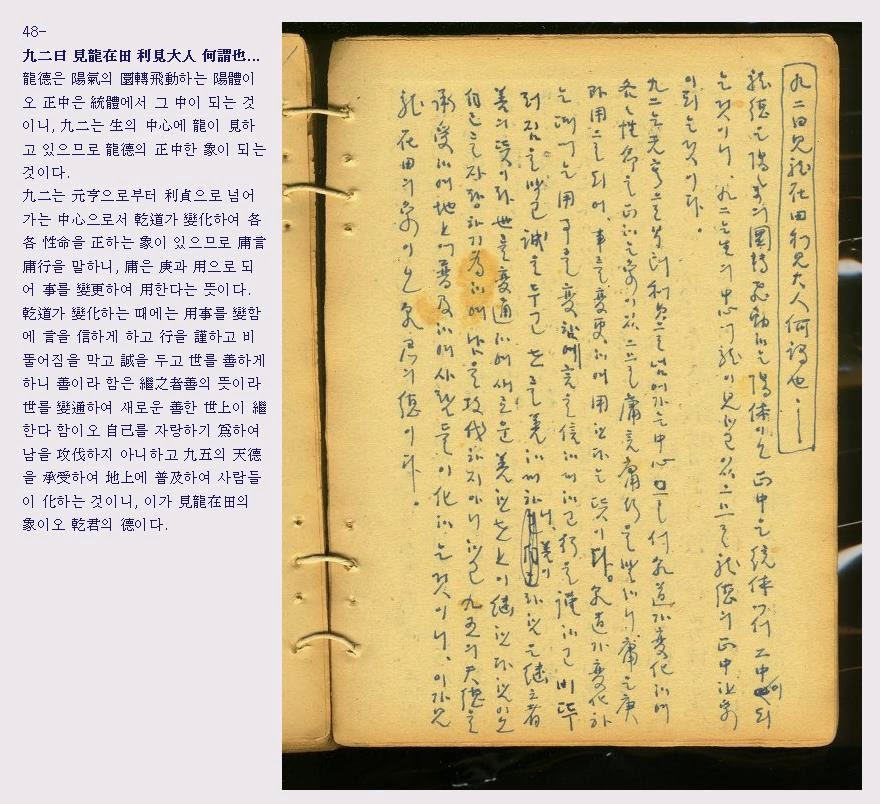 48-
九二曰 見龍在田 利見大人 何謂也...
龍德은 陽氣의 圜轉飛動하는 陽體이
오 正中은 統體에서 그 中이 되는 것
이니, 九二는 生의 中心에 龍이 見하
고 있으므로 龍德의 正中한 象이 되는
것이다.
九二는 元亨으로부터 利貞으로 넘어
가는 中心으로서 乾道가 變化하여 各
各 性命을 正하는 象이 있으므로 庸言
庸行을 말하니, 庸은 庚과 用으로 되
어 事를 變更하여 用한다는 뜻이다.
乾道가 變化하는 때에는 用事를 變함
에 言을 信하게 하고 行을 謹하고 비
뚤어짐을 막고 誠을 두고 世를 善하게
하니 善이라 함은 繼之者善의 뜻이라
世를 變通하여 새로운 善한 世上이 繼
한다 함이오 自己를 자랑하기 爲하여
남을 攻伐하지 아니하고 九五의 天德
을 承受하여 地上에 普及하여 사람들
이 化하는 것이니, 이가 見龍在田의
象이오 乾君의 德이다.
九二曰見龍在田利見大人何謂也...
龍德은陽氣의圜轉飛動하는陽体이오正中은統体에서그中이되
는것이니, 九二는生의中心에龍이見하고있으므로龍德의正中한象
이되는것이다.
九二는元亨으로부터利貞으로넘어가는中心으로서乾道가變化하여
各各性命을正하는象이있으므로庸言庸行을말하니庸은庚
과用으로되어, 事를變更하여用한다는뜻이다. 乾道가變化하
는때에는用事를變함에言을信하게하고行을謹하고비뚜
러짐을막고誠을두고世를善하게하니, 善이라함은繼之者
善의뜻이라世를變通하여새로운善한世上이繼한다함이오
自己를자랑하기爲하여남을攻伐하지아니하고九五의天德을
承受하여地上에普及하여사람들이化하는것이니, 이가見
龍在田의象이오乾君의德이다.